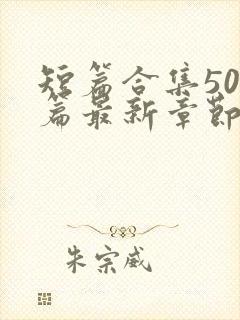 短篇合集50
篇最新章節
朱宗威